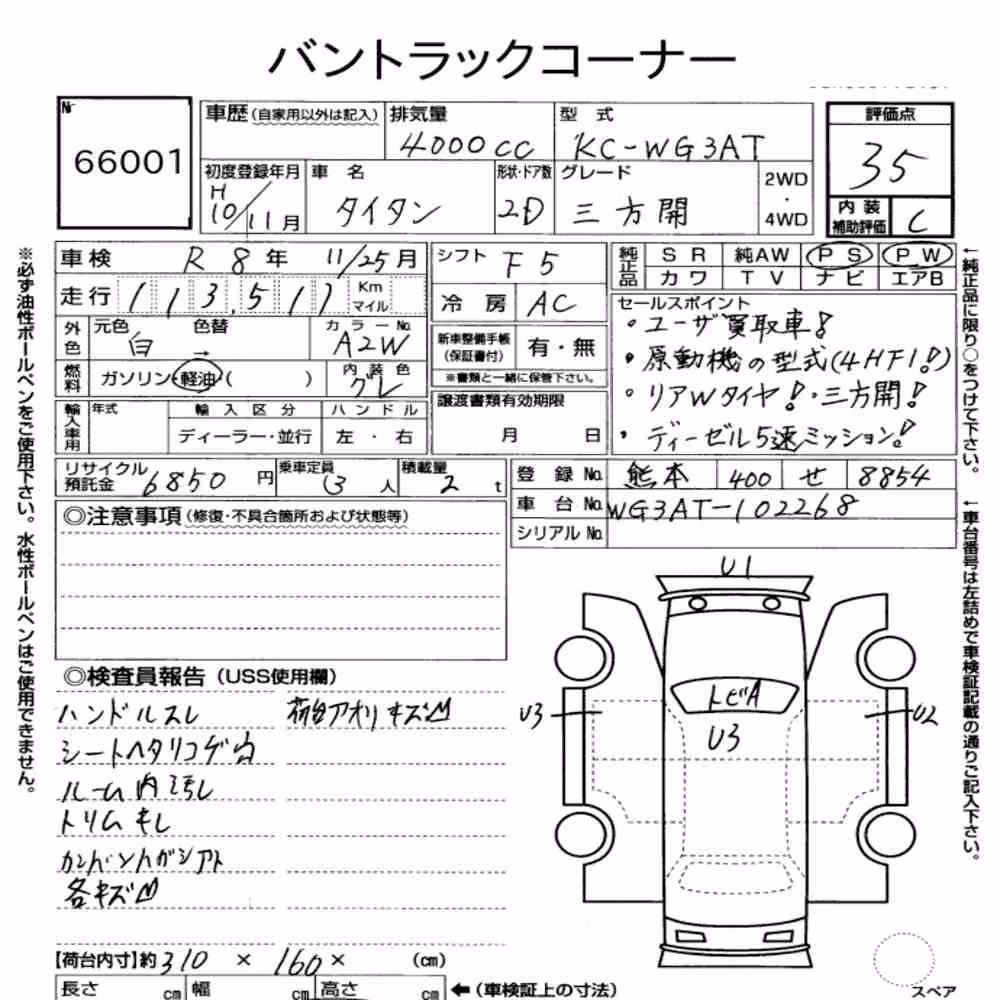 バントラックコーナー
№
66001
車歴(自家用以外は記入)
排気量
4000cc
型 式
KC-WG3AT
評価点
35
内装補助評価 C
初度登録年月
H10/11月
車 名
タイタン
形状・ドア数
2D
グレード
三方開
2WD
・
4WD
車検 R 8年 11/25月
走行 113,511 Km マイル
シフト F5
冷房 AC
純正品 SR 純AW PS PW
カワ TV ナビ エアB
外色 元色 白 色替 → カラーNo. A2W
燃料 ガソリン・軽油・( )
内装色 グレ
新車整備手帳(保証書付) 有・無
※書類と一緒に保管下さい。
セールスポイント
・ユーザ買取車!
・原動機の型式(4HF1!)
・リアWタイヤ!・三方開!
・ディーゼル5速ミッション!
輸入車用 年式 輸入区分 ハンドル
ディーラー・並行 左・右
譲渡書類有効期限
月 日
リサイクル預託金 6850円
乗車定員 3人
積載量 2t
登録No. 熊本 400 せ 8854
車台No. WG3AT-102268
シリアルNo.
◎注意事項(修復・不具合箇所および状態等)
◎検査員報告(USS使用欄)
ハンドルスレ 荷台アオリキズ凹
シートヘタリコゲ穴
ルーム内汚レ
トリムキレ
各キズ凹
U1
トビA
U3
U3
U2
【荷台内寸】約310 × 160 × (cm)
長さ cm 幅 cm 高さ cm ←(車検証上の寸法)
スペア
※必ず油性ボールペンをご使用下さい。水性ボールペンはご使用できません。
←純正品に限り○をつけて下さい。
←車台番号は左詰めで車検証記載の通りご記入下さい。